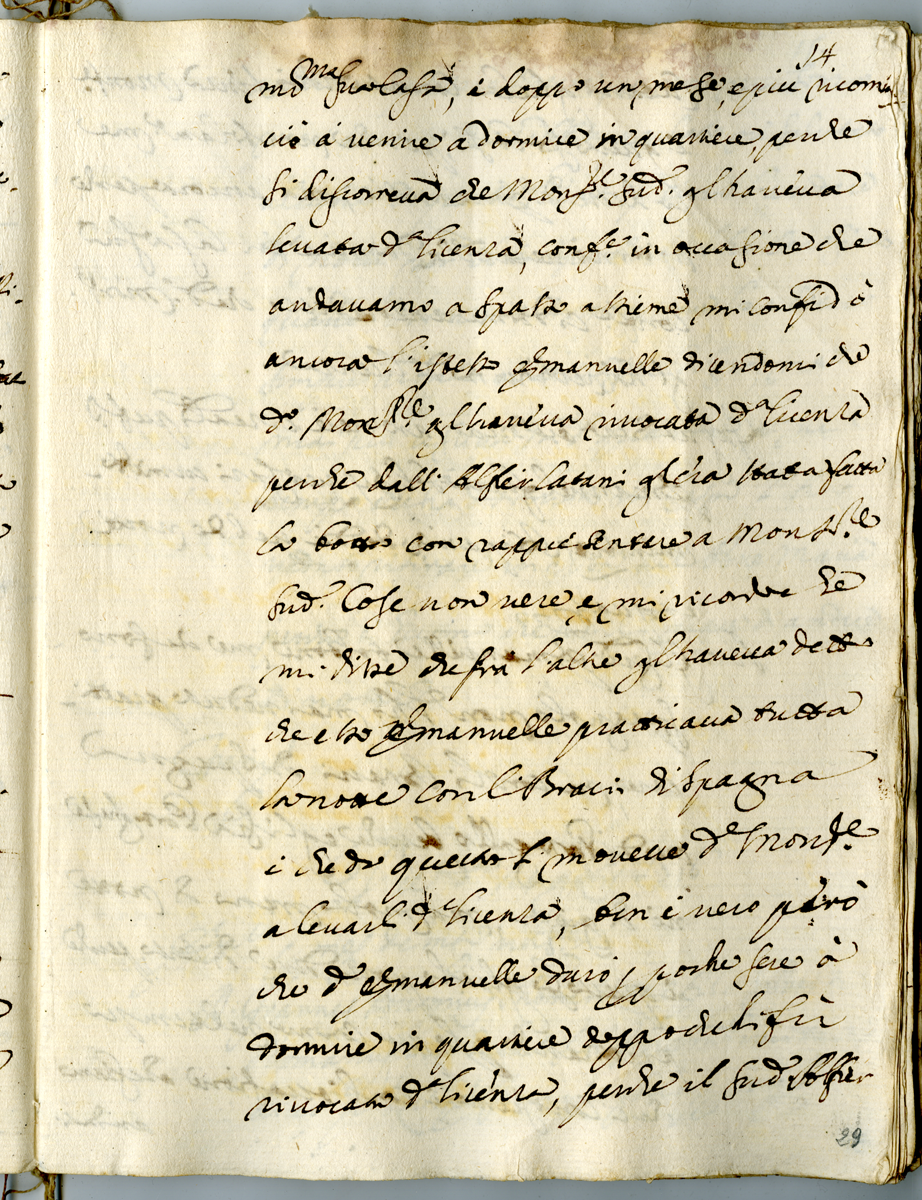 14
ma
mo sua casa, e doppo un mese, e più ricomin
ciò à venire a dormire in quartiere, perche
si discorreva che Mons.re sud.o gl'haveva
levata d.a licenza, conf.e in occasione che
andavamo a spasso assieme mi confidò
ancora l'istesso Emanuelle dicendomi che
d.o Mons.re gl'haveva rivocata d.a licenza
perche dall'Alfier Catani gl'era stata fatta
la botta con rappresentare a Mons.re
sud.o Cose non vere, e mi ricordo che
mi disse che frà l'altre gl'haveva detto
che esso Emanuelle pratticava tutta
la notte con li Bracci di Spagna
e che da questo si moveva d.o Mons.re
a levarli d.a licenza, ben è vero però
che d.o Emanuelle durò poche sere à
dormire in quartiere doppo che li fù
rivocata d.a licenza, perche il sud.o Alfier
29